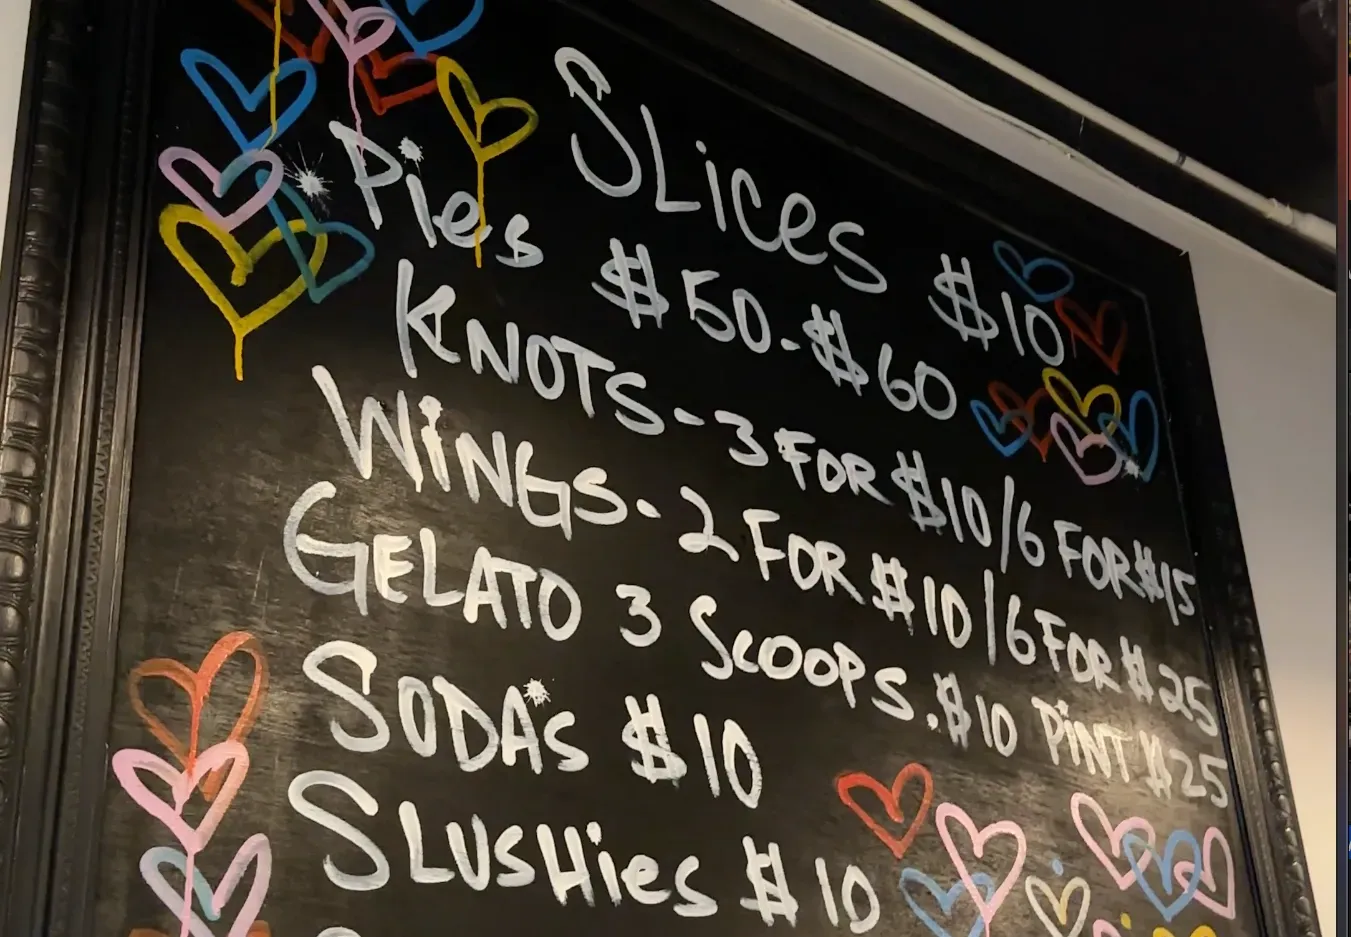 SLiCeS $10
Pies $50-$60
KNOTS-3 FOR $10/6 FOR $15
WiNGS-2 FOR $10/6 FOR $25
GELATO 3 ScOOPS.$10 PiNT $25
SODA'S $10
SLUSHieS $10